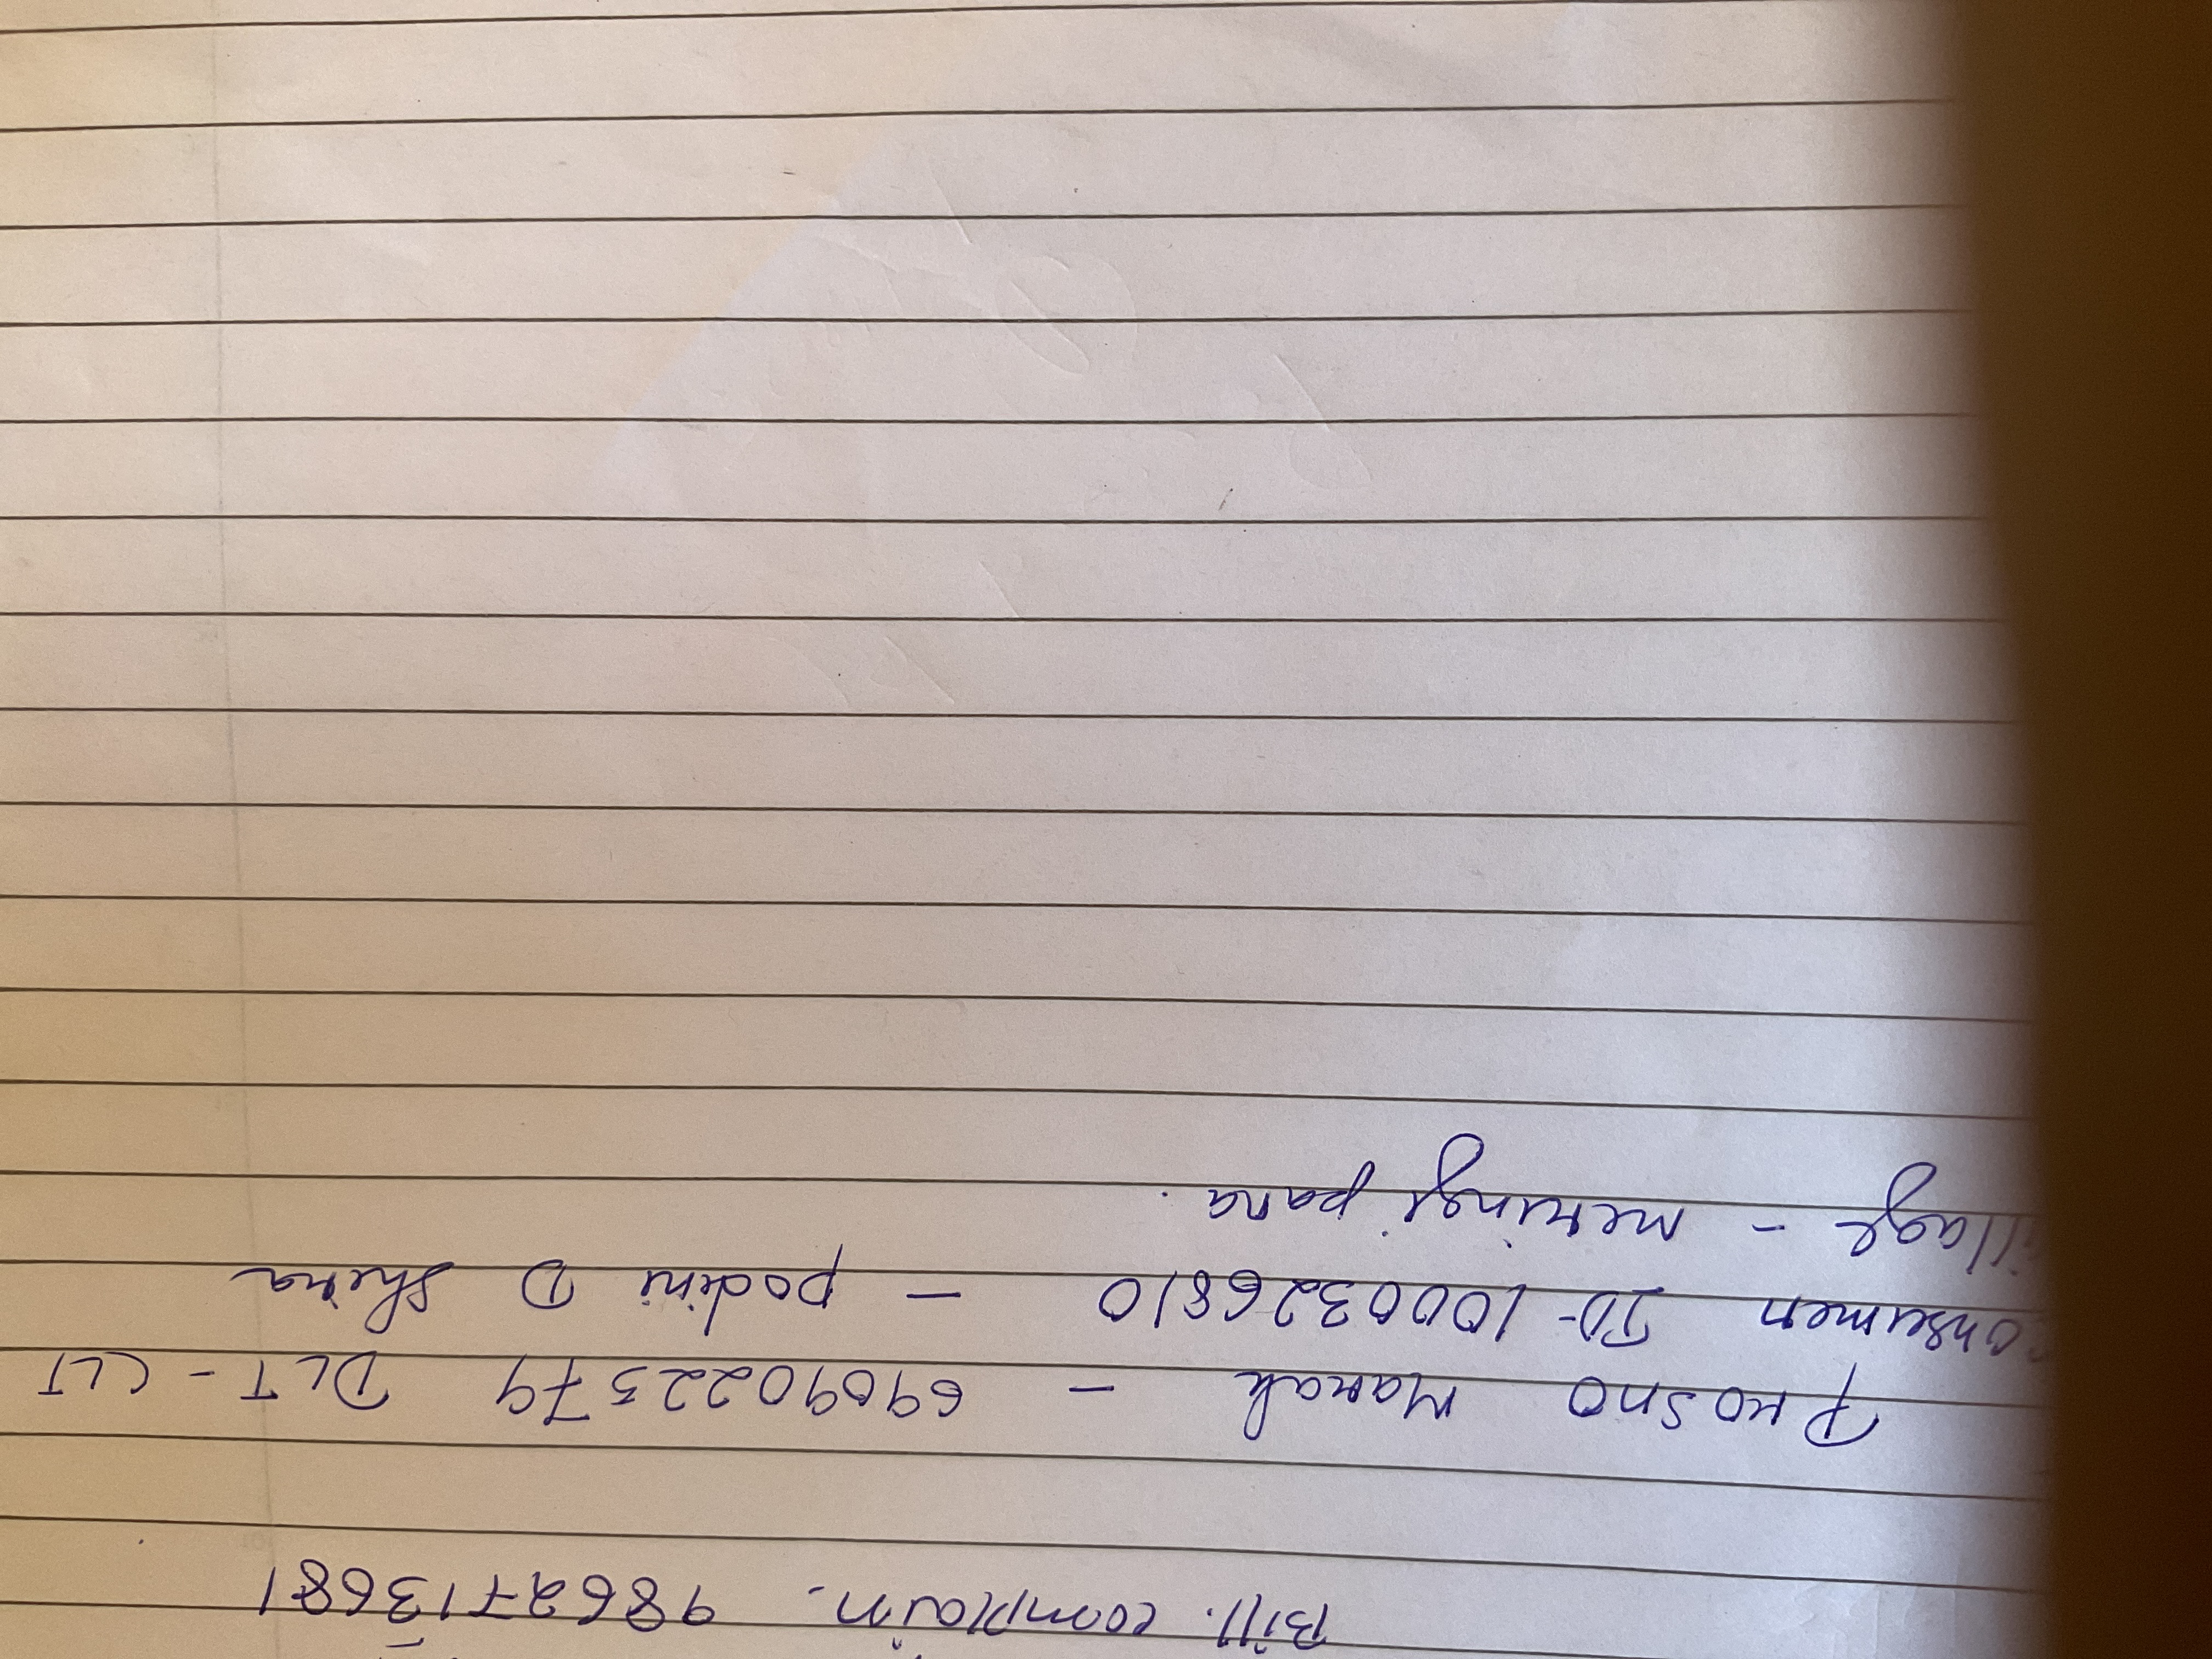 Bill. complain. 9862713681
Prosno Marak - 6909022379 DLT - CLT
Consumer ID - 1000326810 - podini D Shira
village - meringi para.